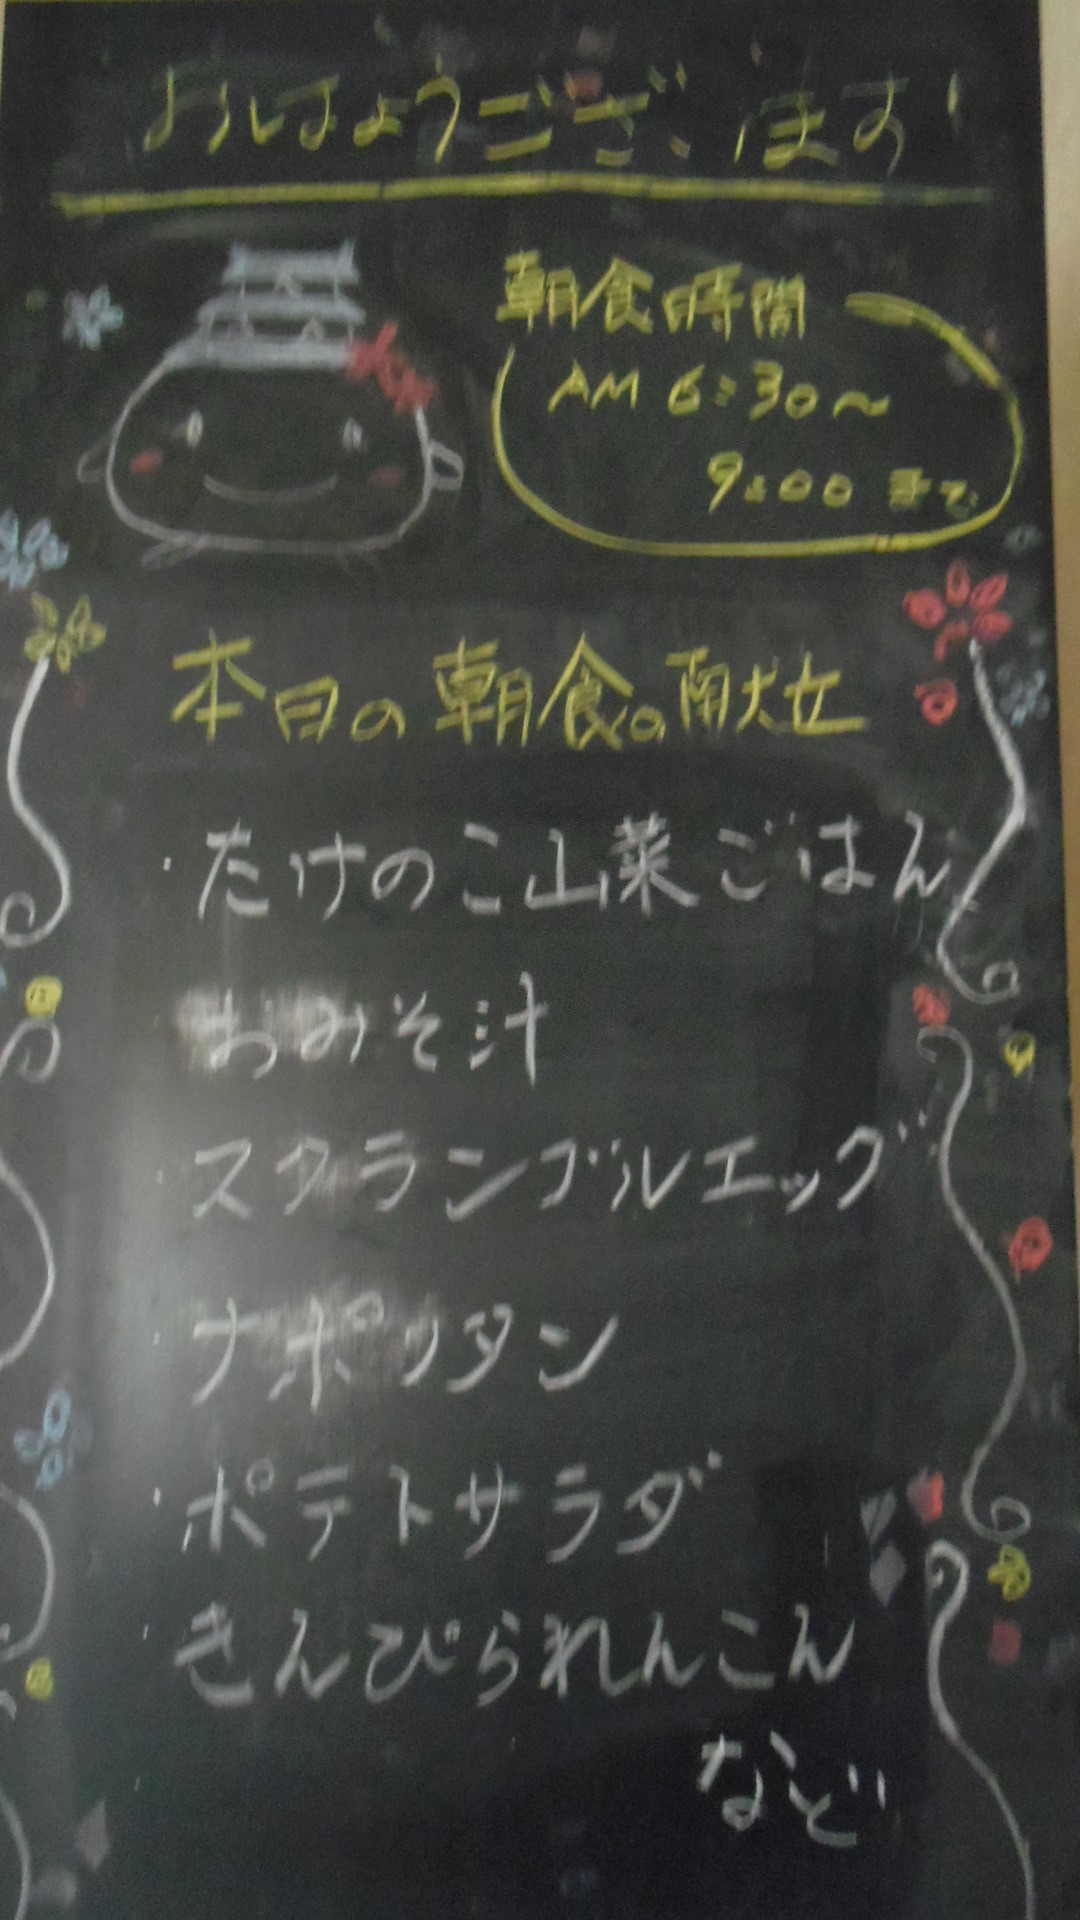 おはようございます!
朝食時間
AM 6:30〜
9:00 まで
本日の朝食の献立
・たけのこ山菜ごはん
おみそ汁
・スクランブルエッグ
・ナポリタン
・ポテトサラダ
・きんぴられんこん
など